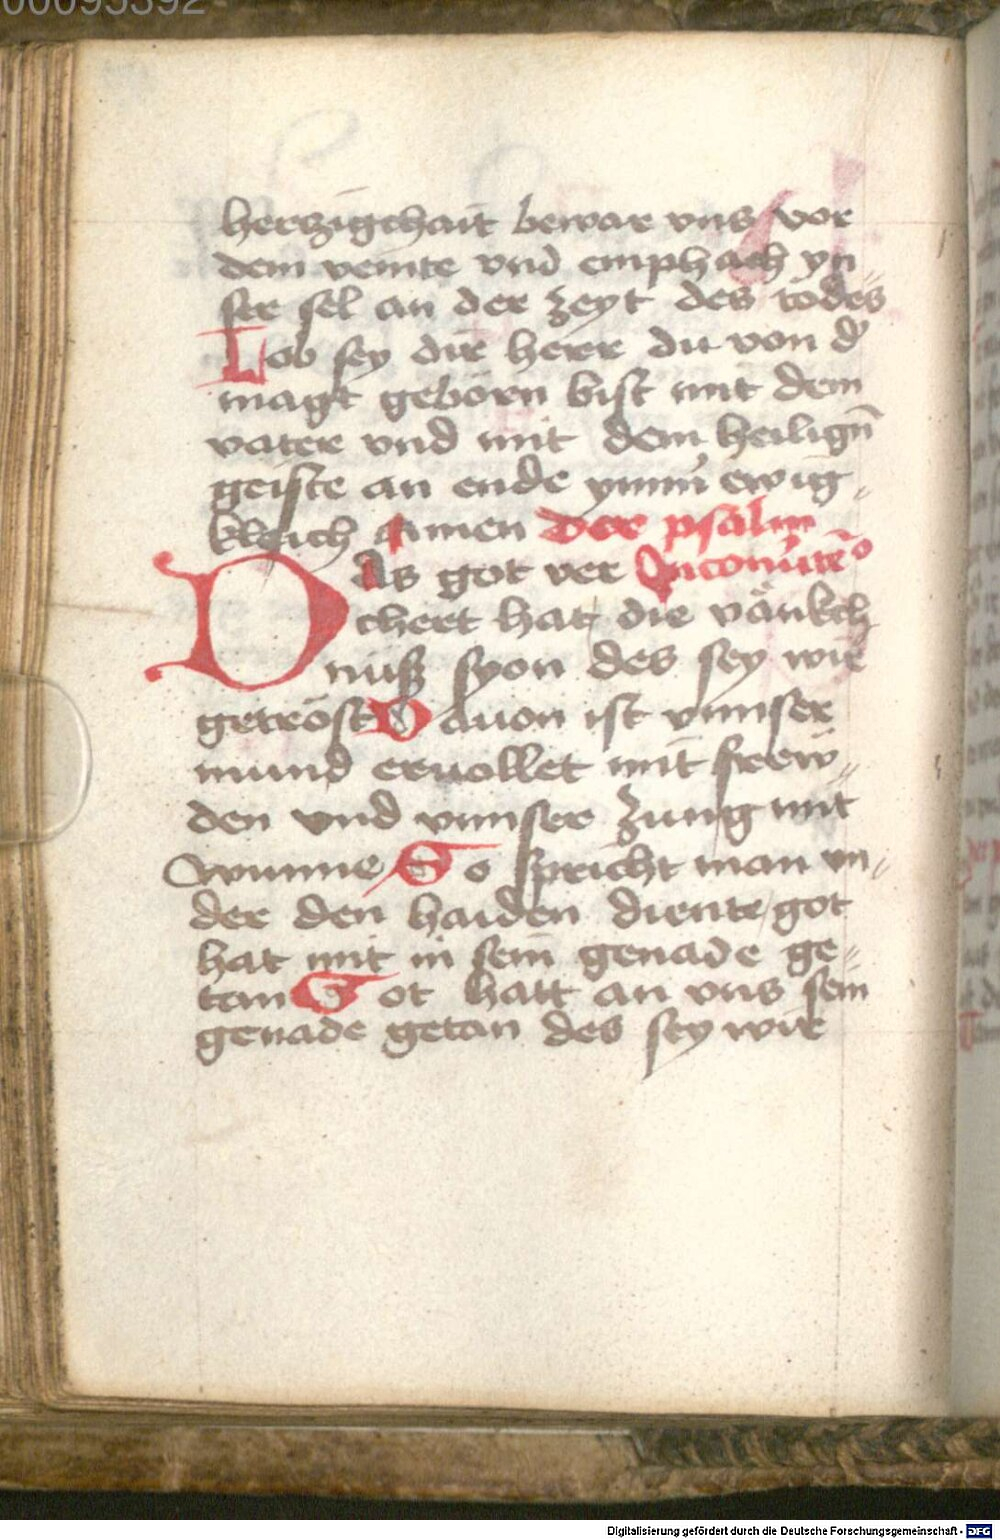 00095392
herczigchait bewar vns vor
dem veinte vnd emphach vn
ser sel an der zeyt des todes
Lob sey dir herr du von d'
magt geborn bist mit dem
vater vnd mit dem heilign̄
geiste an ende ymm' ewig-
kleich amen Der psalm
Das got ver In conu'tēdo
chert hat die vänkch
nuß syon des sey wir
getröst Dauon ist vnnser
mund eruollet mit frew-
den vnd vnnser zung mit
wunne So spricht man vn-
der den haiden diente got
hat mit in sein genade ge-
tan Got hatt an vns sein
genade getan des sey wir
Digitalisierung gefördert durch die Deutsche Forschungsgemeinschaft - DFG